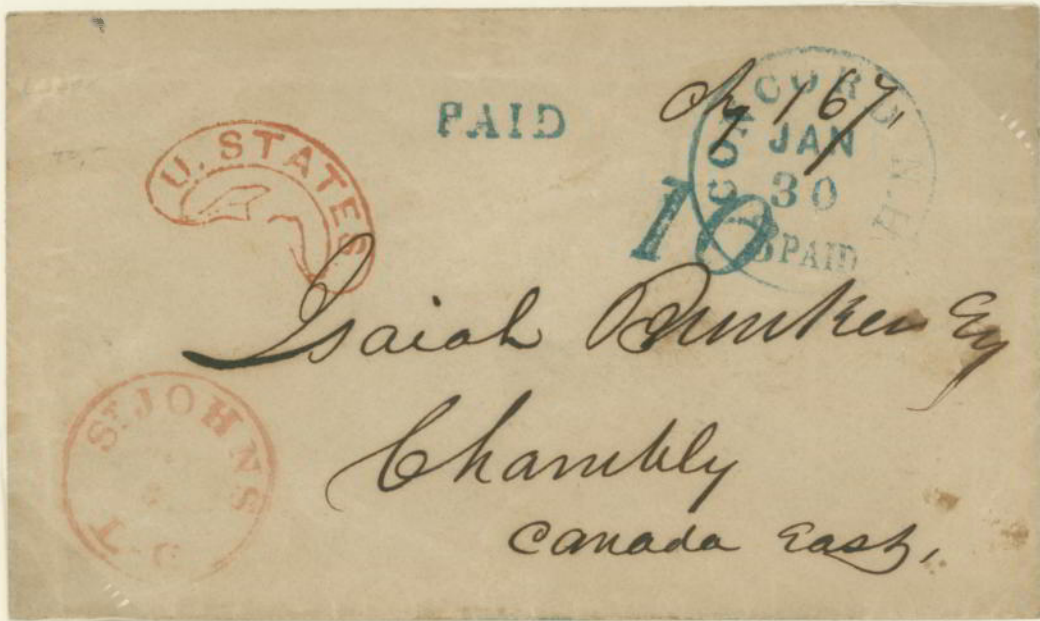 PAID
U. STATES
CONCORD N.H.
JAN
30
3 PAID
10
Isaiah Bunker Esq
Chambly
Canada East,
ST JOHNS